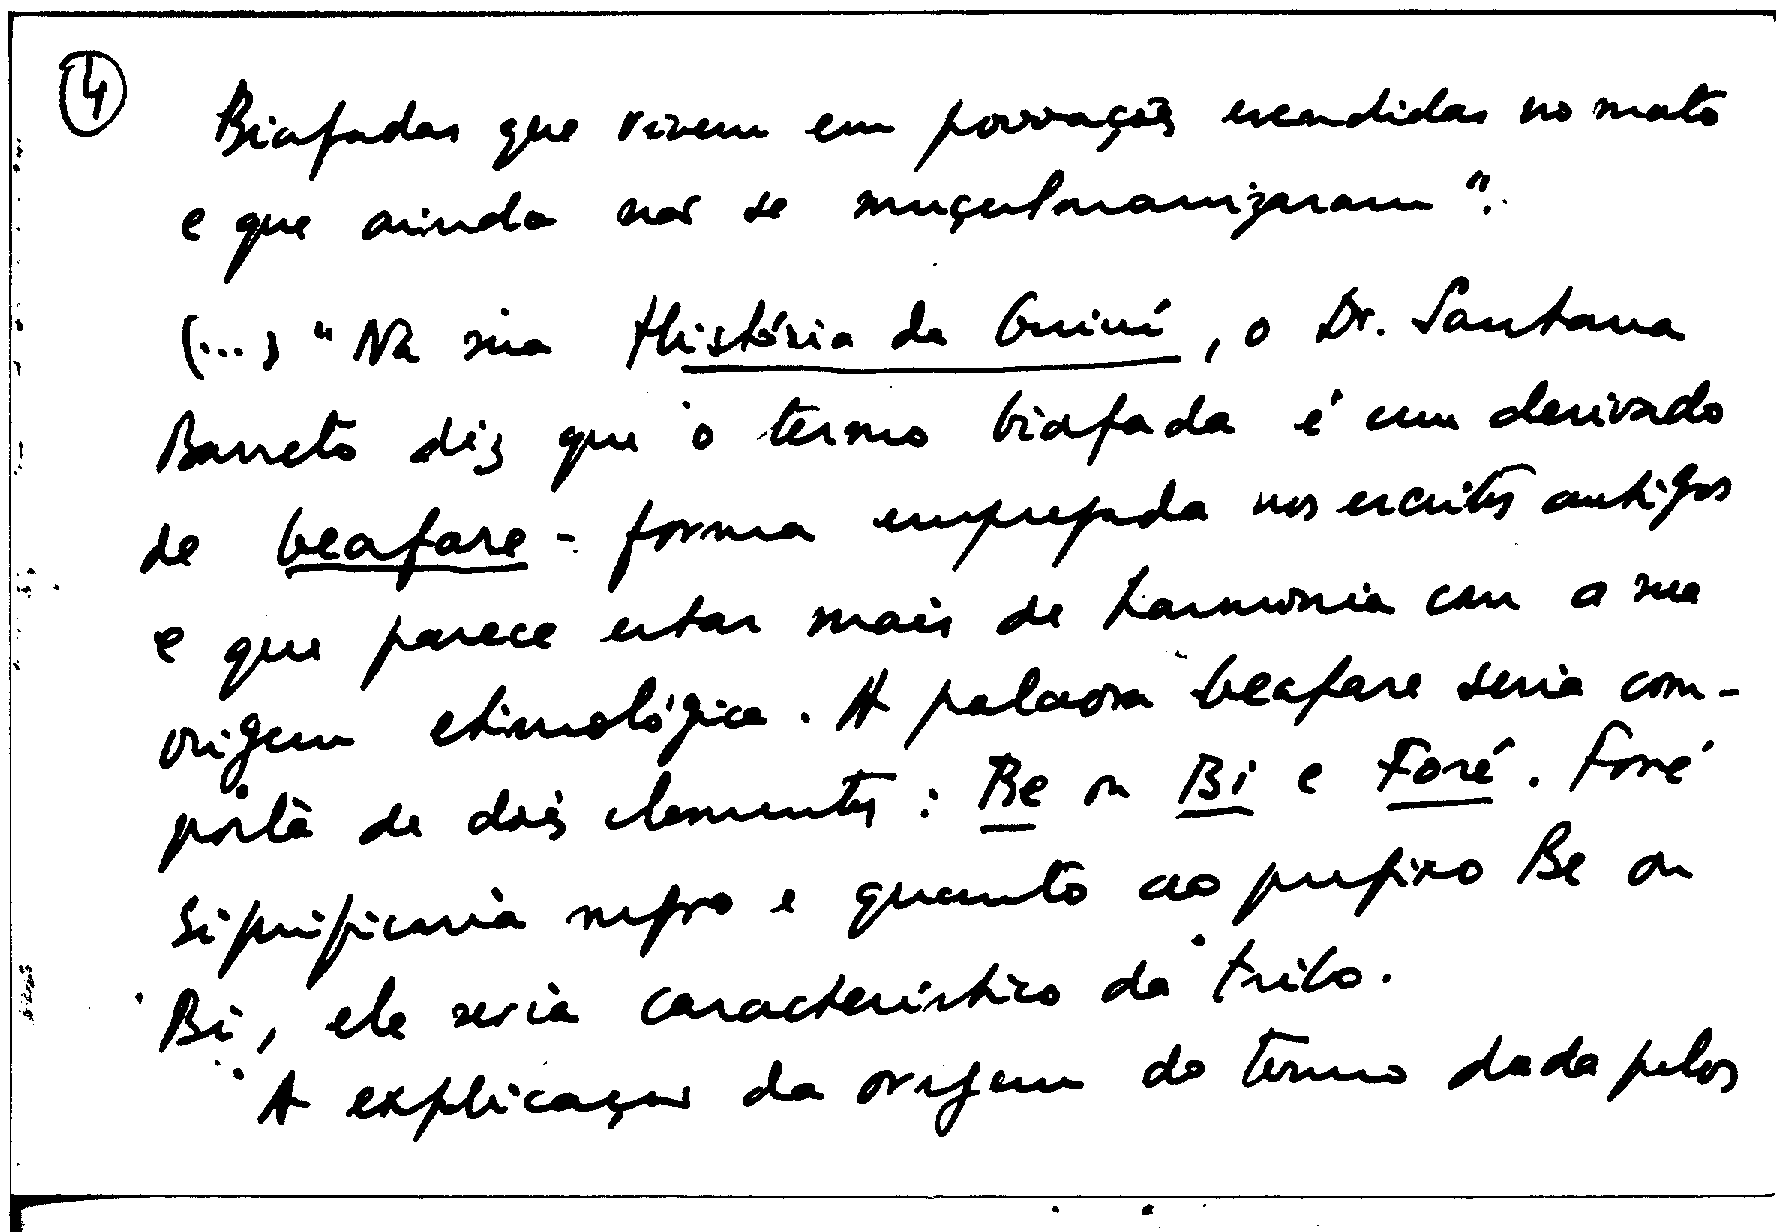 ④
Biafadas que vivem em povoações escondidas no mato
e que ainda não se muçulmanizaram".
(...) "Na sua História da Guiné, o Dr. Santana
Barreto diz que o termo biafada é um derivado
de beafare - forma empregada nos escritos antigos
e que parece estar mais de harmonia com a sua
origem etimológica. A palavra beafare seria com-
posta de dois elementos: Be ou Bi e Foré. Foré
significaria negro e quanto ao prefixo Be ou
Bi, ele seria característico da tribo.
A explicação da origem do termo dada pelos